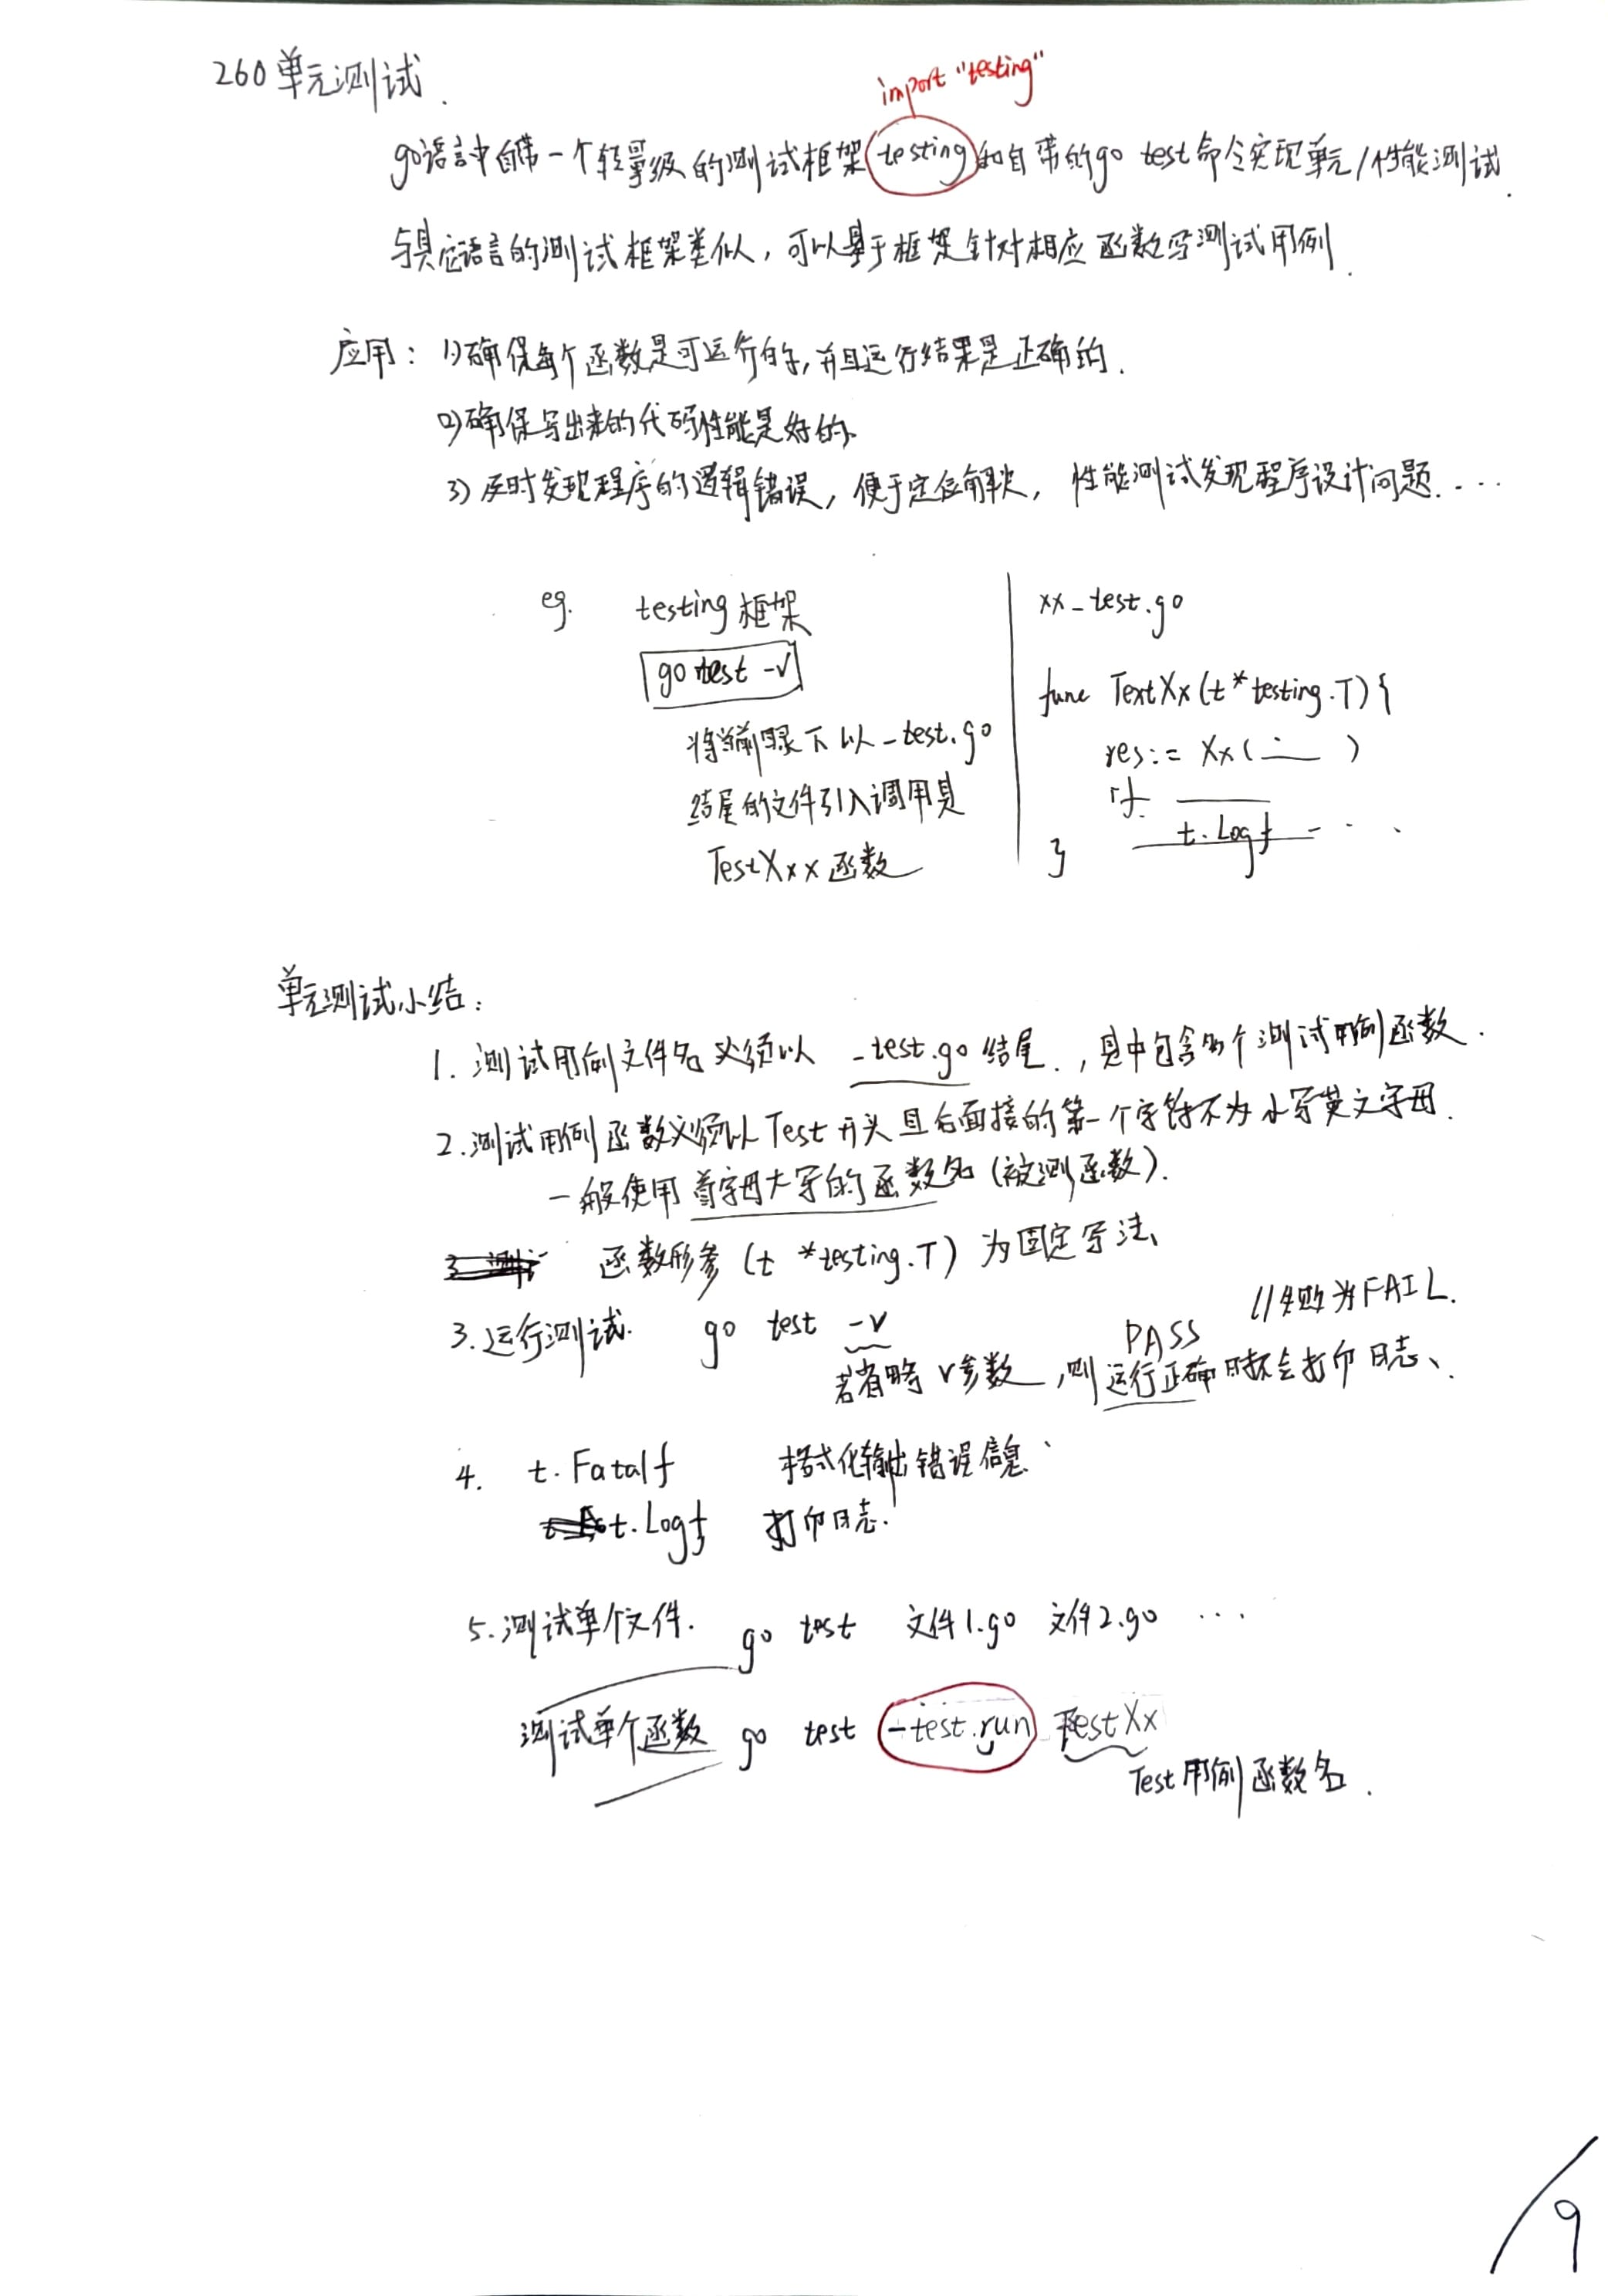 260 单元测试.
import "testing"
go语言中自带一个轻量级的测试框架 testing 和自带的go test命令实现单元/性能测试.
与其它语言的测试框架类似, 可以基于框架针对相应函数写测试用例.
应用: 1)确保每个函数是可运行的, 并且运行结果是正确的.
2)确保写出来的代码性能是好的.
3)及时发现程序的逻辑错误, 便于定位解决, 性能测试发现程序设计问题....
eg. testing 框架
go test -v
将当前目录下以_test.go
结尾的文件引入调用其
TestXxx 函数
xx_test.go
func TextXx(t*testing.T){
res:= Xx( )
if
t.Logf - . .
}
单元测试小结:
1. 测试用例文件名必须以 _test.go 结尾., 其中包含多个测试用例函数.
2.测试用例函数必须以Test开头且后面接的第一个字符不为小写英文字母.
一般使用首字母大写的函数名(被测函数).
函数形参 (t *testing.T) 为固定写法、
3.运行测试. go test -v PASS //失败为FAIL.
若省略v参数, 则运行正确时不会打印日志、
4. t.Fatalf 格式化输出错误信息、
t.Logf 打印日志.
5.测试单个文件. go test 文件1.go 文件2.go ...
测试单个函数 go test -test.run TestXx
Test用例函数名.
9